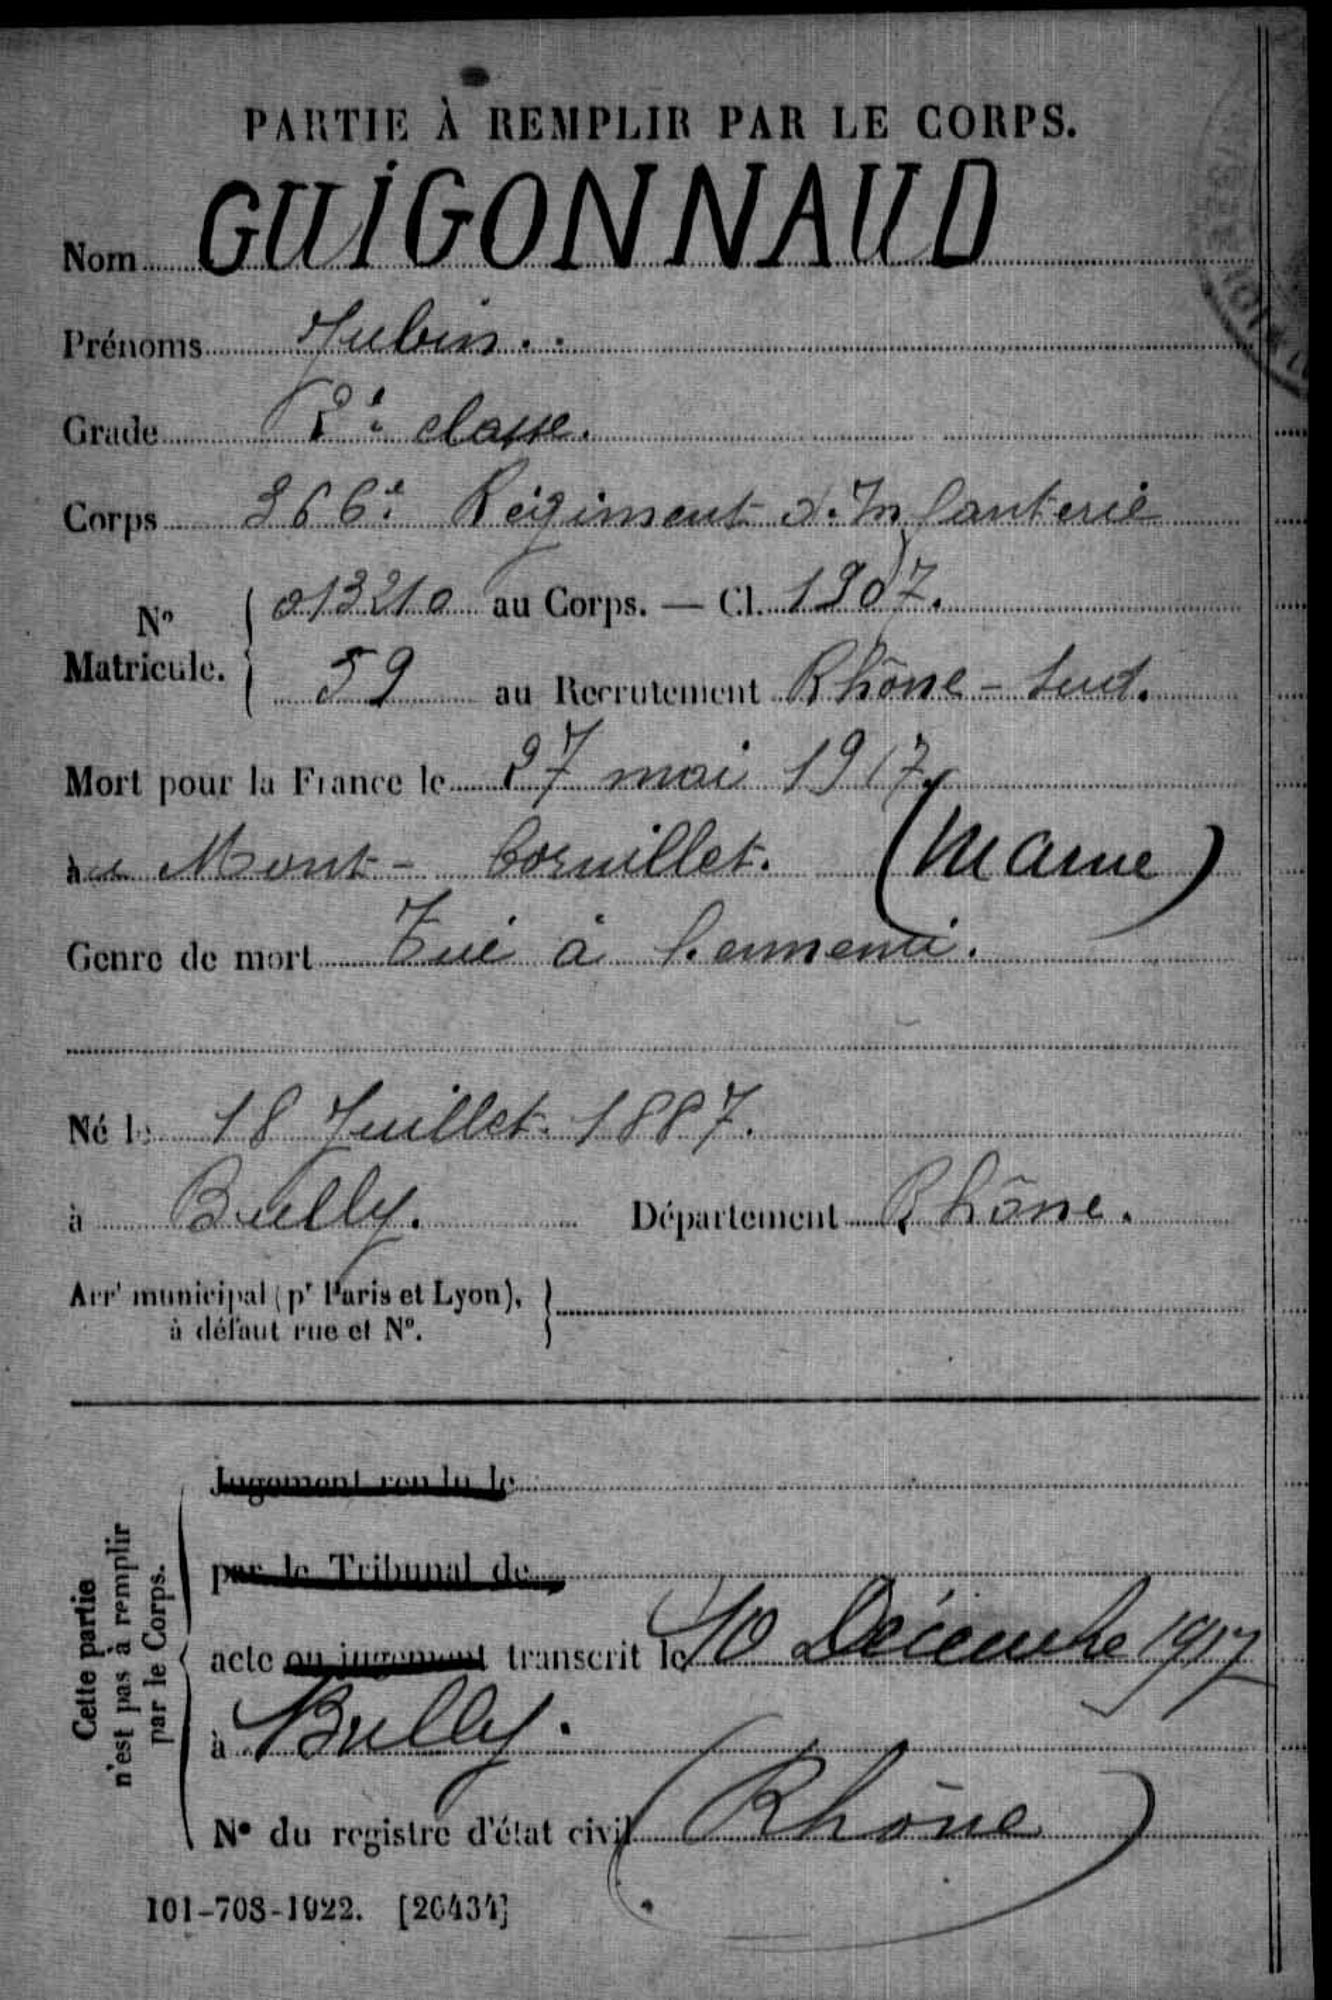 PARTIE À REMPLIR PAR LE CORPS.
Nom GUIGONNAUD
Prénoms Jubin.
Grade 2e classe.
Corps 366e Régiment d'Infanterie
No Matricule. 013210 au Corps. — Cl. 1907.
59 au Recrutement Rhône-Sud.
Mort pour la France le 27 mai 1917.
au Mont-Cornillet. (Marne)
Genre de mort Tué à l'ennemi.
Né le 18 Juillet 1887.
à Bully. Département Rhône.
Arrt municipal (pr Paris et Lyon),
à défaut rue et No.
Jugement rendu le
par le Tribunal de
acte ou jugement transcrit le 10 Décembre 1917
à Bully.
No du registre d'état civil (Rhône)
Cette partie
n'est pas à remplir
par le Corps.
101-708-1922. [26434]